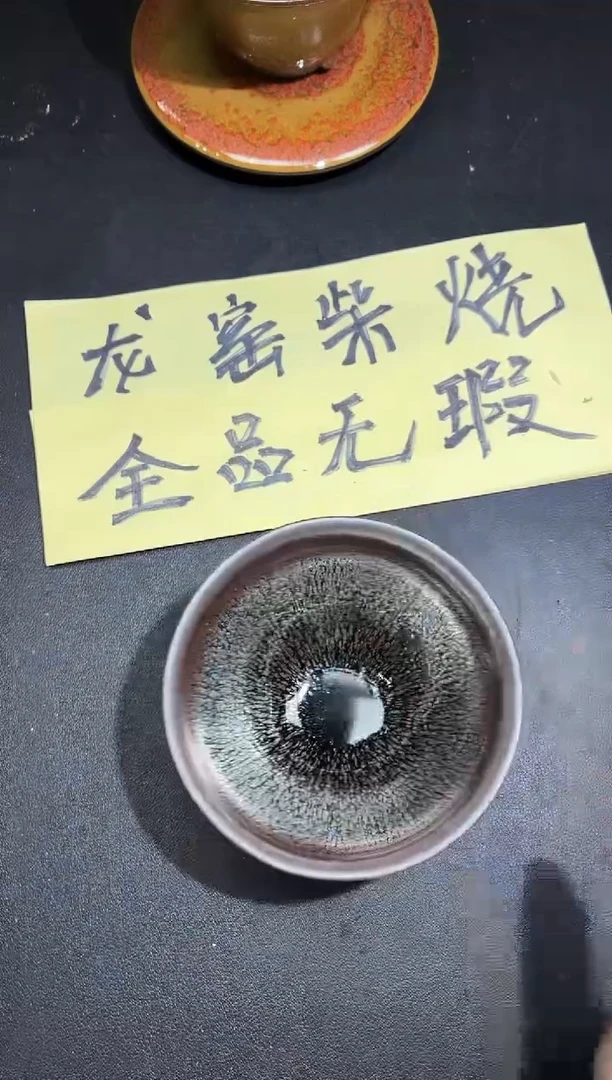 龙窑柴烧
全品无瑕